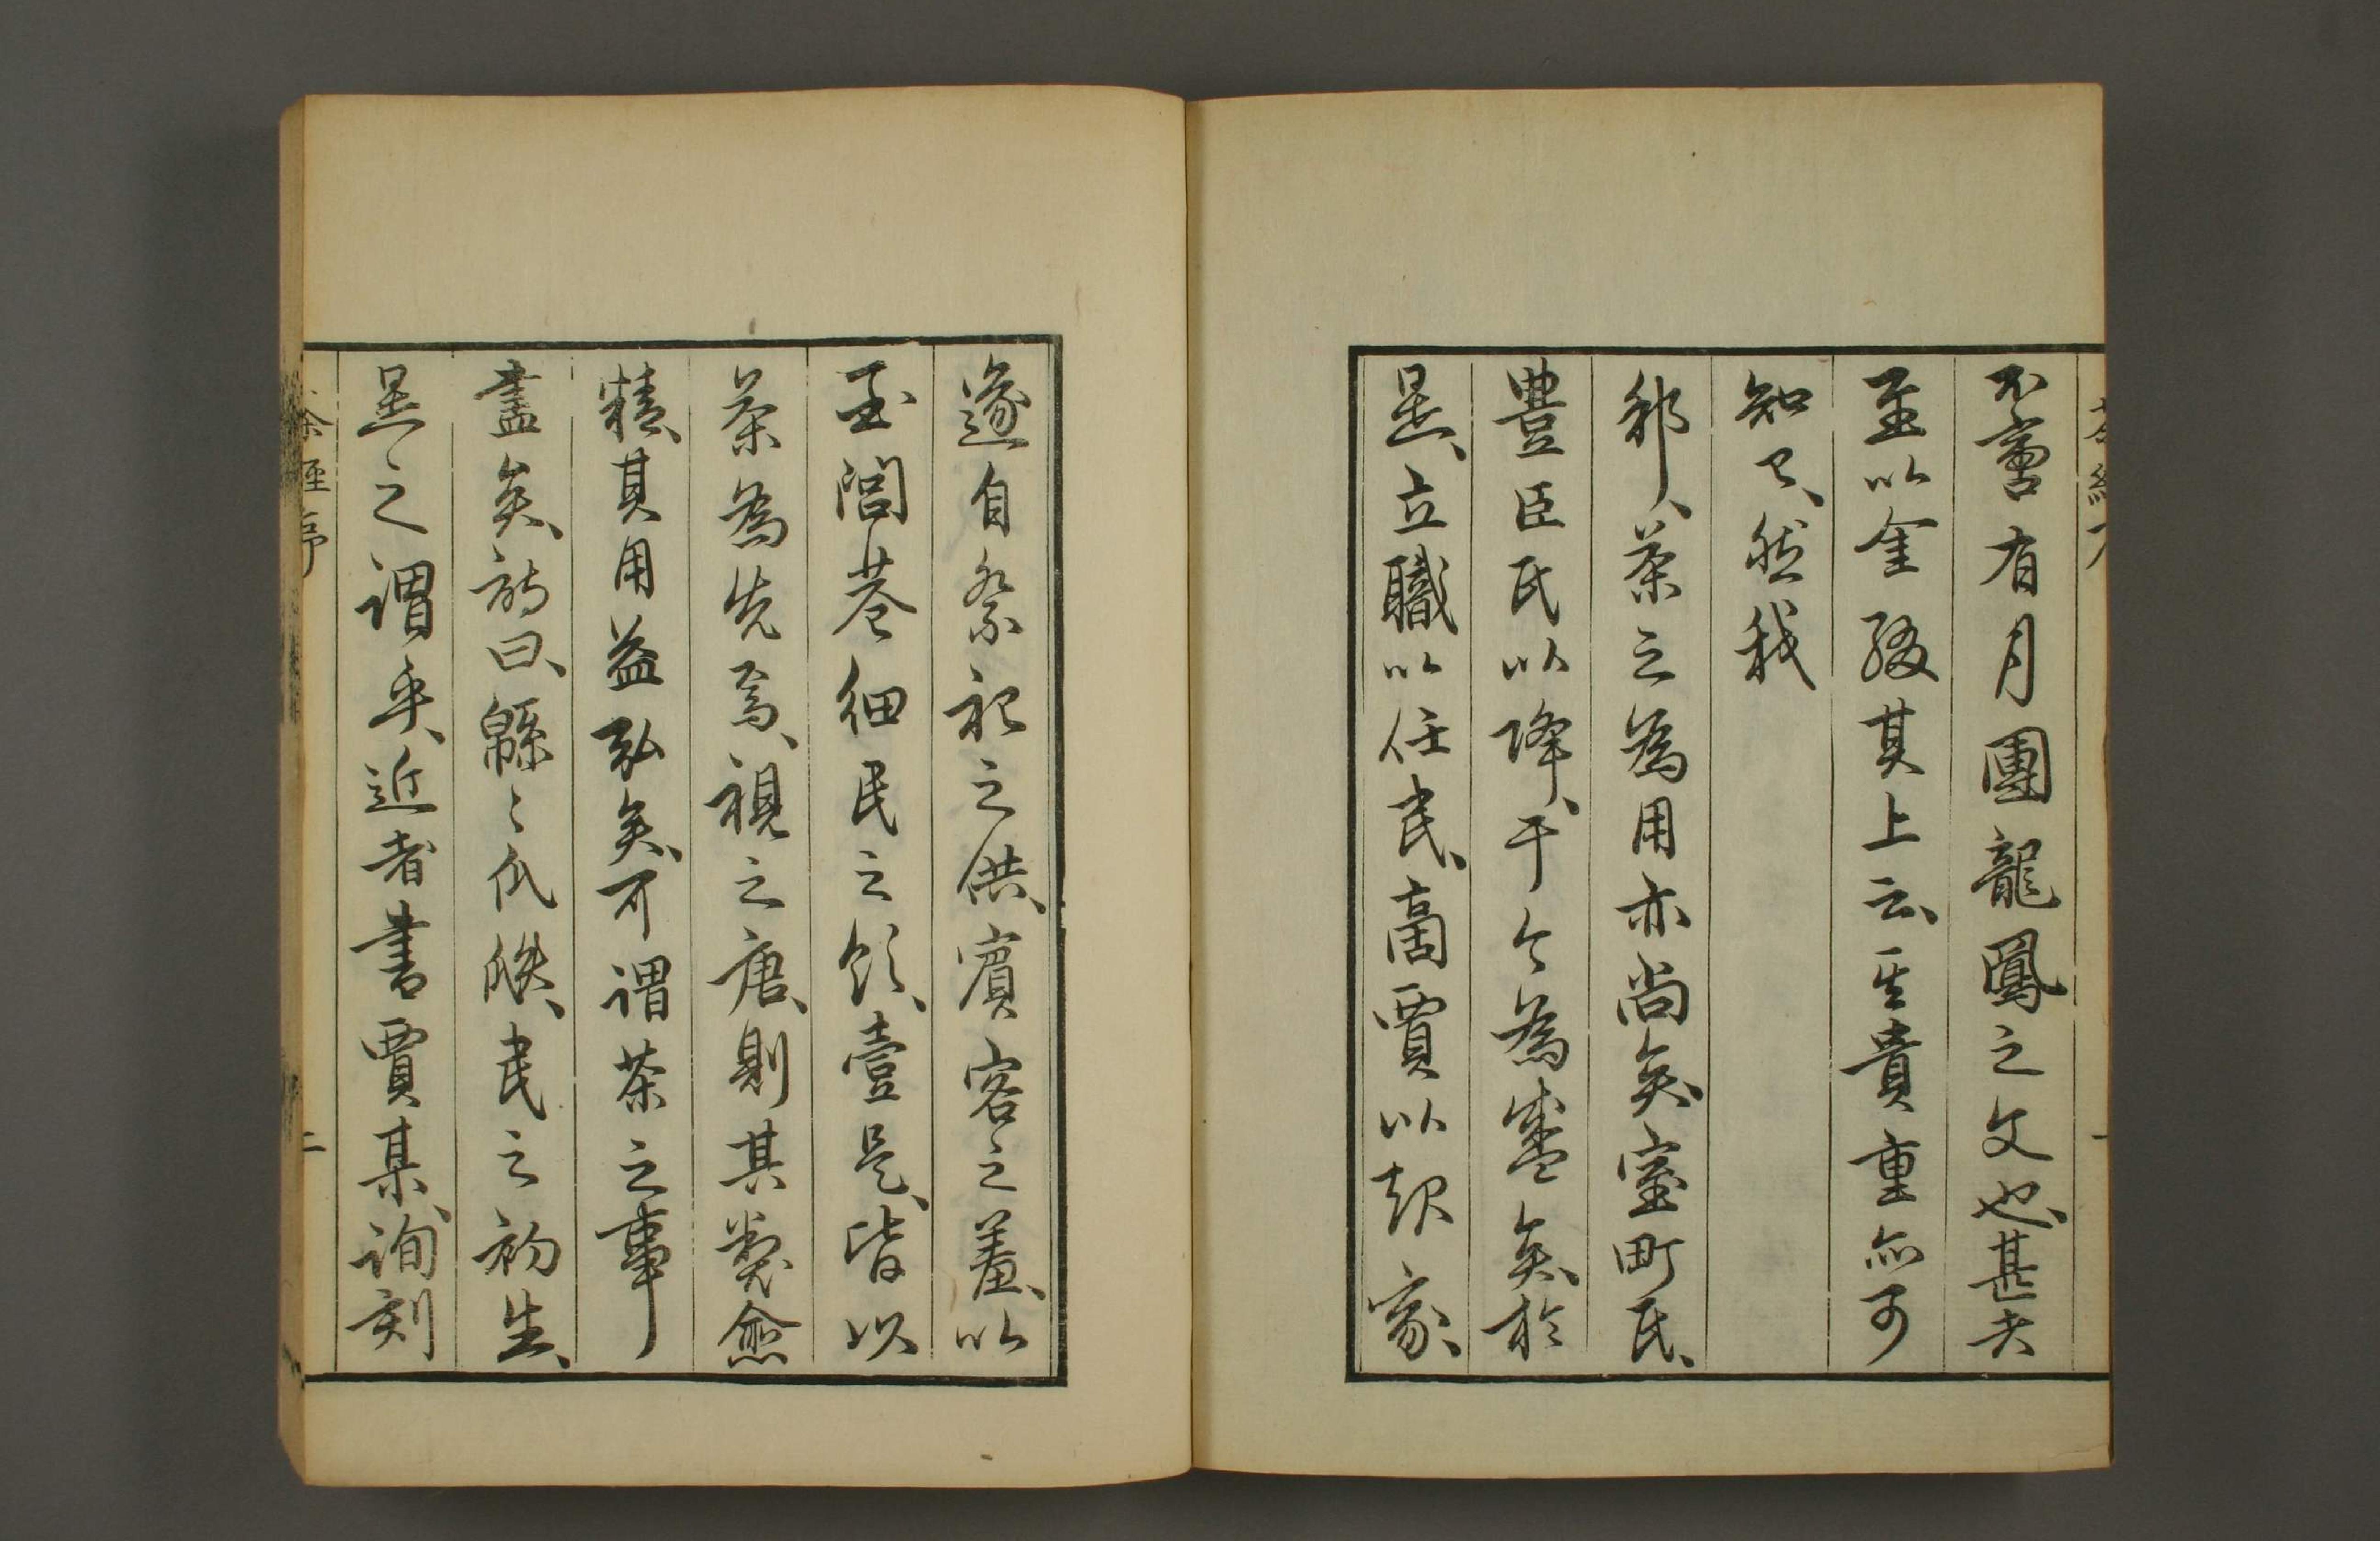 不啻有月團龍鳳之文也甚夫
至以金綴其上云其貴重亦可
知已、然我
邦、茶之為用亦尚矣室町氏、
豊臣氏以降、于今為盛矣、於
是、立職以任民、商賈以起家、
遂自祭祀之供、賓客之羞、以
至閭巷細民之飲、壹是、皆以
茶為先焉、視之唐、則其製愈
精、其用益弘矣、可謂茶之事
盡矣、詩曰、緜〻瓜瓞、民之初生、
是之謂乎、近者書賈某、詢刻
茶經序
二